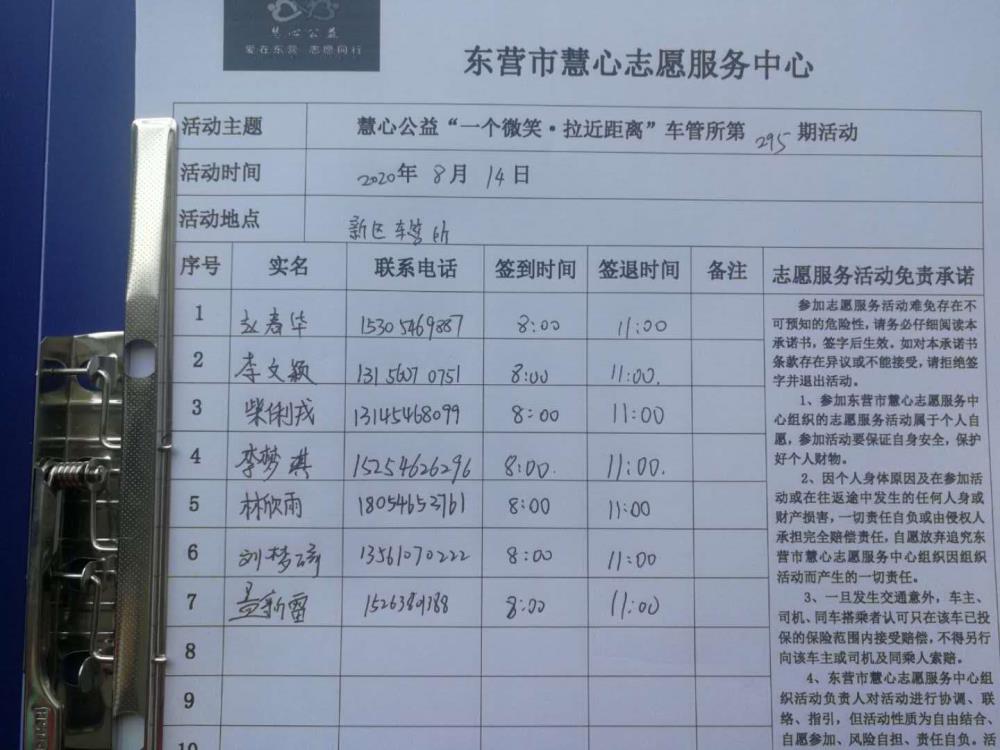 慧心公益
爱在东营 志愿同行
东营市慧心志愿服务中心
活动主题 慧心公益“一个微笑·拉近距离”车管所第295期活动
活动时间 2020年 8月 14日
活动地点 新区车管所
序号 实名 联系电话 签到时间 签退时间 备注 志愿服务活动免责承诺
1 赵春华 15305469887 8:00 11:00
2 李文颖 13156070751 8:00 11:00.
3 柴俐戎 13145468099 8:00 11:00
4 李梦琪 15254626296 8:00. 11:00.
5 林欣雨 18054653761 8:00 11:00
6 刘梦 13561070222 8:00 11:00
7 孟新雷 8:00 11:00
8
9
10
参加志愿服务活动难免存在不
可预知的危险性,请务必仔细阅读本
承诺书,签字后生效。如对本承诺书
条款存在异议或不能接受,请拒绝签
字并退出活动。
1、参加东营市慧心志愿服务中
心组织的志愿服务活动属于个人自
愿,参加活动要保证自身安全,保护
好个人财物。
2、因个人身体原因及在参加活
动或在往返途中发生的任何人身或
财产损害,一切责任自负或由侵权人
承担完全赔偿责任,自愿放弃追究东
营市慧心志愿服务中心组织因组织
活动而产生的一切责任。
3、一旦发生交通意外,车主、
司机、同车搭乘者认可只在该车已投
保的保险范围内接受赔偿,不得另行
向该车主或司机及同乘人索赔。
4、东营市慧心志愿服务中心组
织活动负责人对活动进行协调、联
络、指引,但活动性质为自由结合、
自愿参加、风险自担、责任自负。活